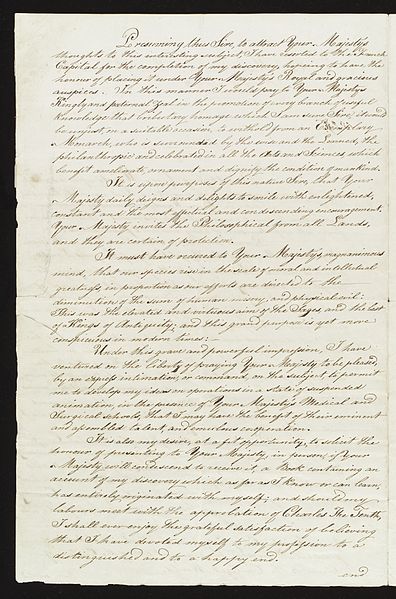 Presuming thus Sire, to attract Your Majesty's
thoughts to this interesting subject, I have resorted to the French
Capital for the completion of my discovery, hoping to have the
honour of placing it under Your Majesty's Royal and gracious
auspices. In this manner I would pay to Your Majesty's
Kingly and paternal zeal in the promotion of every branch of useful
knowledge that tributary homage which I am sure Sire, it would
be unjust on a suitable occasion, to withhold from an Exemplary
Monarch, who is surrounded by the wise and the Learned, the
philanthropic and celebrated in all the Arts and Sciences which
benefit ameliorate, ornament and dignify the condition of mankind.
It is upon purposes of this nature Sire, that Your
Majesty daily deigns and delights to smile with enlightened,
constant and the most effectual and condescending encouragement.
Your Majesty invites the Philosophical from all Lands,
and they are certain of protection.
It must have occured to Your Majesty's magnanimous
mind, that our species rise in the scale of moral and intellectual
greatness in proportion as our efforts are directed to the
diminution of the sum of human misery, and physical evil:
This was the elevated and virtuous aim of the Sages and the best
of Kings of Antiquity; and this grand purpose is yet more
conspicuous in modern times:—
Under this grave and powerful impression, I have
ventured on the liberty of praying Your Majesty to be pleased
by an express intimation, or command, on the subject, to permit
me to develop my ideas on operations in a state of suspended
animation in the presence of Your Majesty's Medical and
Surgical schools, that I may have the benefit of their eminent
and assembled talent, and emulous cooperation.
It is also my desire, at a fit opportunity, to solicit the
honour of presenting to Your Majesty, in person, if your
Majesty will condescend to receive it, a Book containing an
account of my discovery which as far as I know or can learn,
has entirely originated with myself; and should my
labours meet with the approbation of Charles The Tenth,
I shall ever enjoy the grateful satisfaction of believing
that I have devoted myself to my profession to a
distinguished and to a happy end.
and